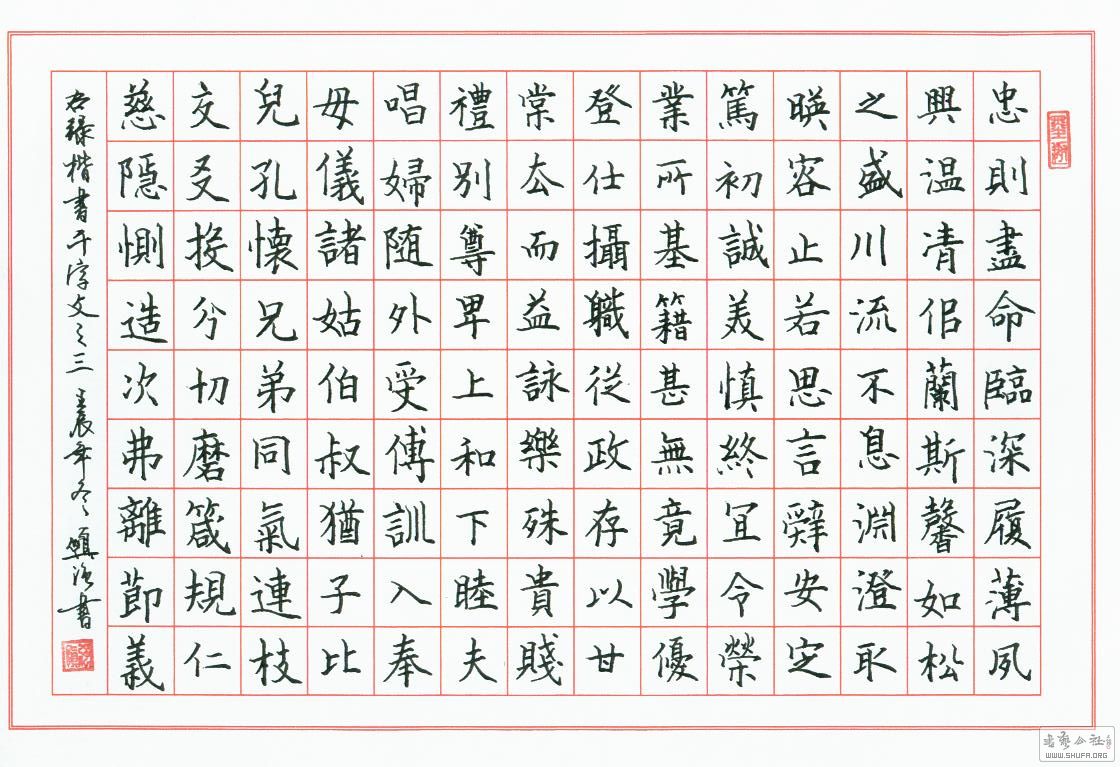 忠則盡命臨深履薄夙
興温凊佀蘭斯馨如松
之盛川流不息淵澄取
暎容止若思言辭安定
篤初誠美慎終宜令榮
業所基籍甚無竟學優
登仕攝職從政存以甘
棠去而益詠樂殊貴賤
禮別尊卑上和下睦夫
唱婦随外受傅訓入奉
母儀諸姑伯叔猶子比
兒孔懷兄弟同氣連枝
交友投分切磨箴規仁
慈隱惻造次弗離節義
右録楷書千字文之三 壬辰年冬 書
WWW.SHUFA.ORG